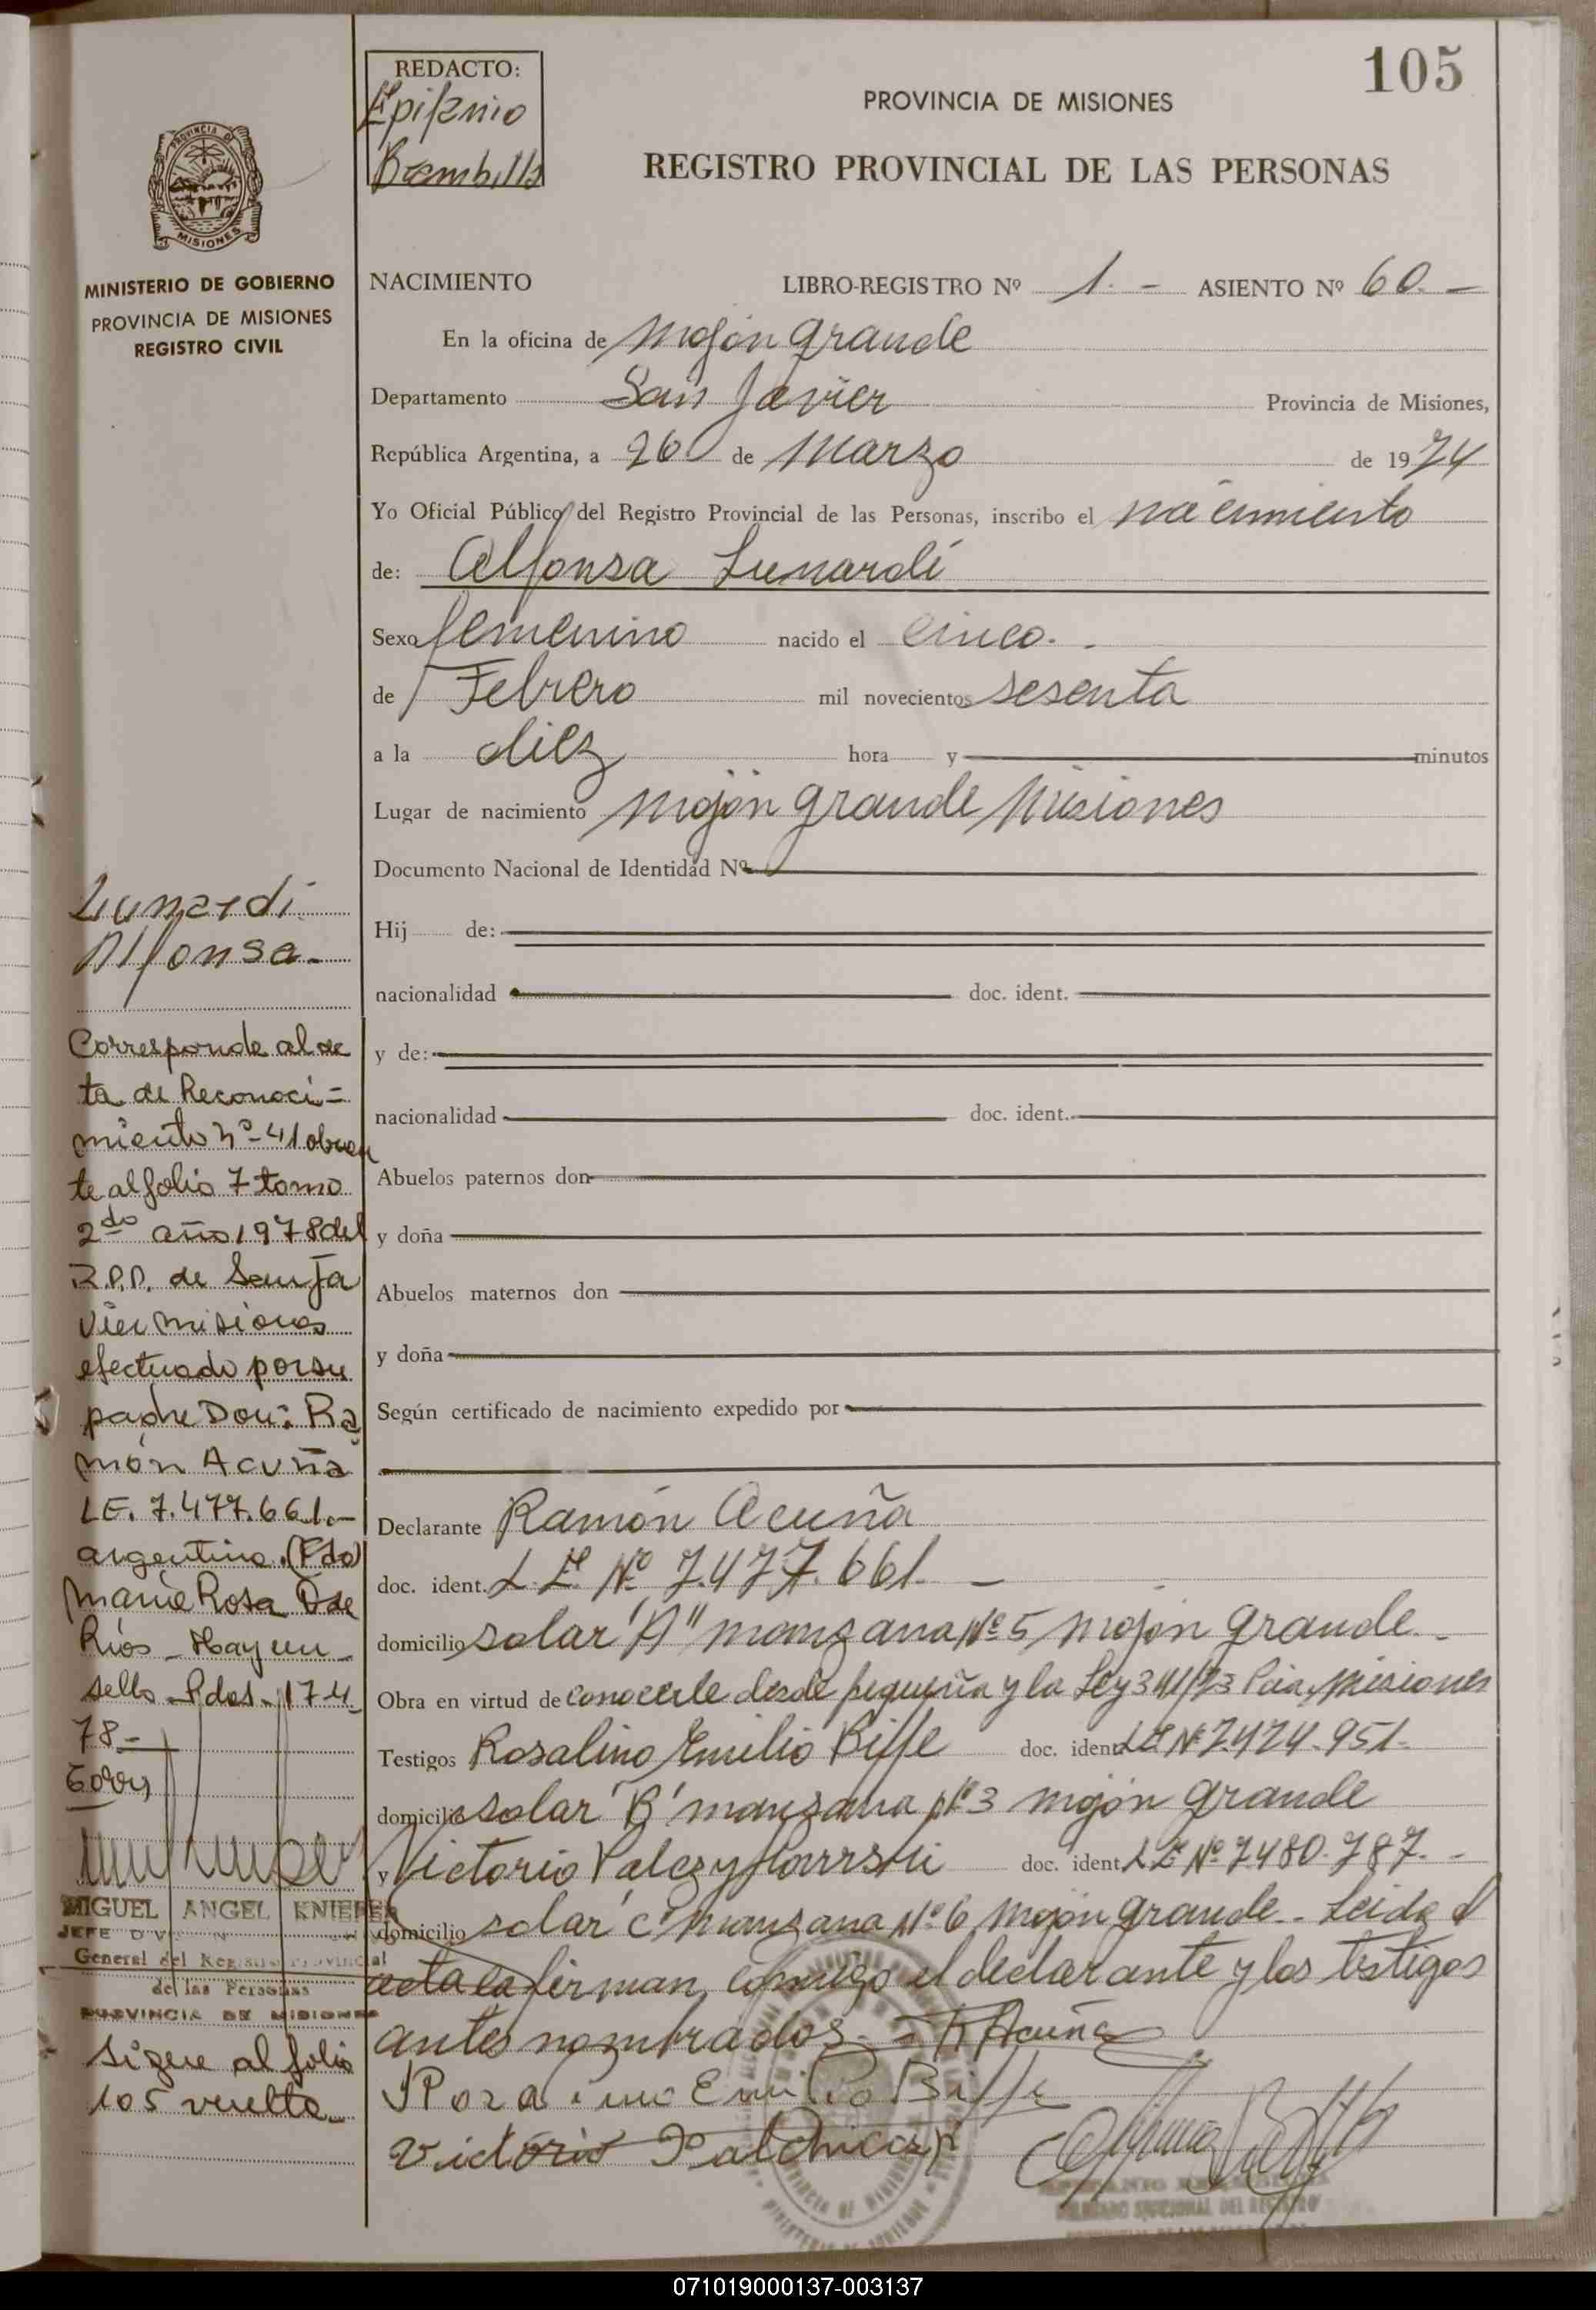 105
REDACTO:
Epifanio
Brambilla
PROVINCIA DE MISIONES
REGISTRO PROVINCIAL DE LAS PERSONAS
PROVINCIA DE
MISIONES
MINISTERIO DE GOBIERNO
PROVINCIA DE MISIONES
REGISTRO CIVIL
NACIMIENTO LIBRO-REGISTRO Nº 1.- ASIENTO Nº 60.-
En la oficina de Mojón grande
Departamento San Javier Provincia de Misiones,
República Argentina, a 26 de Marzo de 1974
Yo Oficial Público del Registro Provincial de las Personas, inscribo el nacimiento
de: Alfonsa Lunardi
Sexo femenino nacido el cinco.-
de Febrero mil novecientos sesenta
a la diez hora y minutos
Lugar de nacimiento Mojón grande Misiones
Documento Nacional de Identidad Nº
Hij de:
nacionalidad doc. ident.
y de:
nacionalidad doc. ident.
Abuelos paternos don
y doña
Abuelos maternos don
y doña
Según certificado de nacimiento expedido por
Declarante Ramón Acuña
doc. ident. L.E. Nº 7.477.661.-
domicilio solar "A" manzana Nº 5 Mojón grande.-
Obra en virtud de conocerle desde pequeña y la Ley Misiones
Testigos Rosalino Emilio Biffe doc. ident. LE Nº 7.424.951.-
domicilio solar "B" manzana Nº 3 Mojón grande
y Victorio doc. ident. LE Nº 7.480.787.-
domicilio solar "C" manzana Nº 6 Mojón grande.- Leida el
acta la firman conmigo el declarante y los testigos
antes nombrados.- R Acuña
Emilio Biffe
Victorio
Lunardi
Alfonsa.-
Corresponde al ac
ta de Reconoci=
miento nº-41 obran
te al folio 7 tomo
2do año 1978 del
R.P.P. de San Ja
vier Misiones
efectuado por su
padre Don: Ra
món Acuña
LE. 7.477.661.-
argentino.(Fdo)
Maria Rosa D de
Rios - Hay un
sello - Pdas - 17 4
78-
MIGUEL ANGEL KNIEPER
JEFE
General del Registro Provincial
de las Personas
PROVINCIA DE MISIONES
Sigue al folio
105 vuelta.-
071019000137-003137